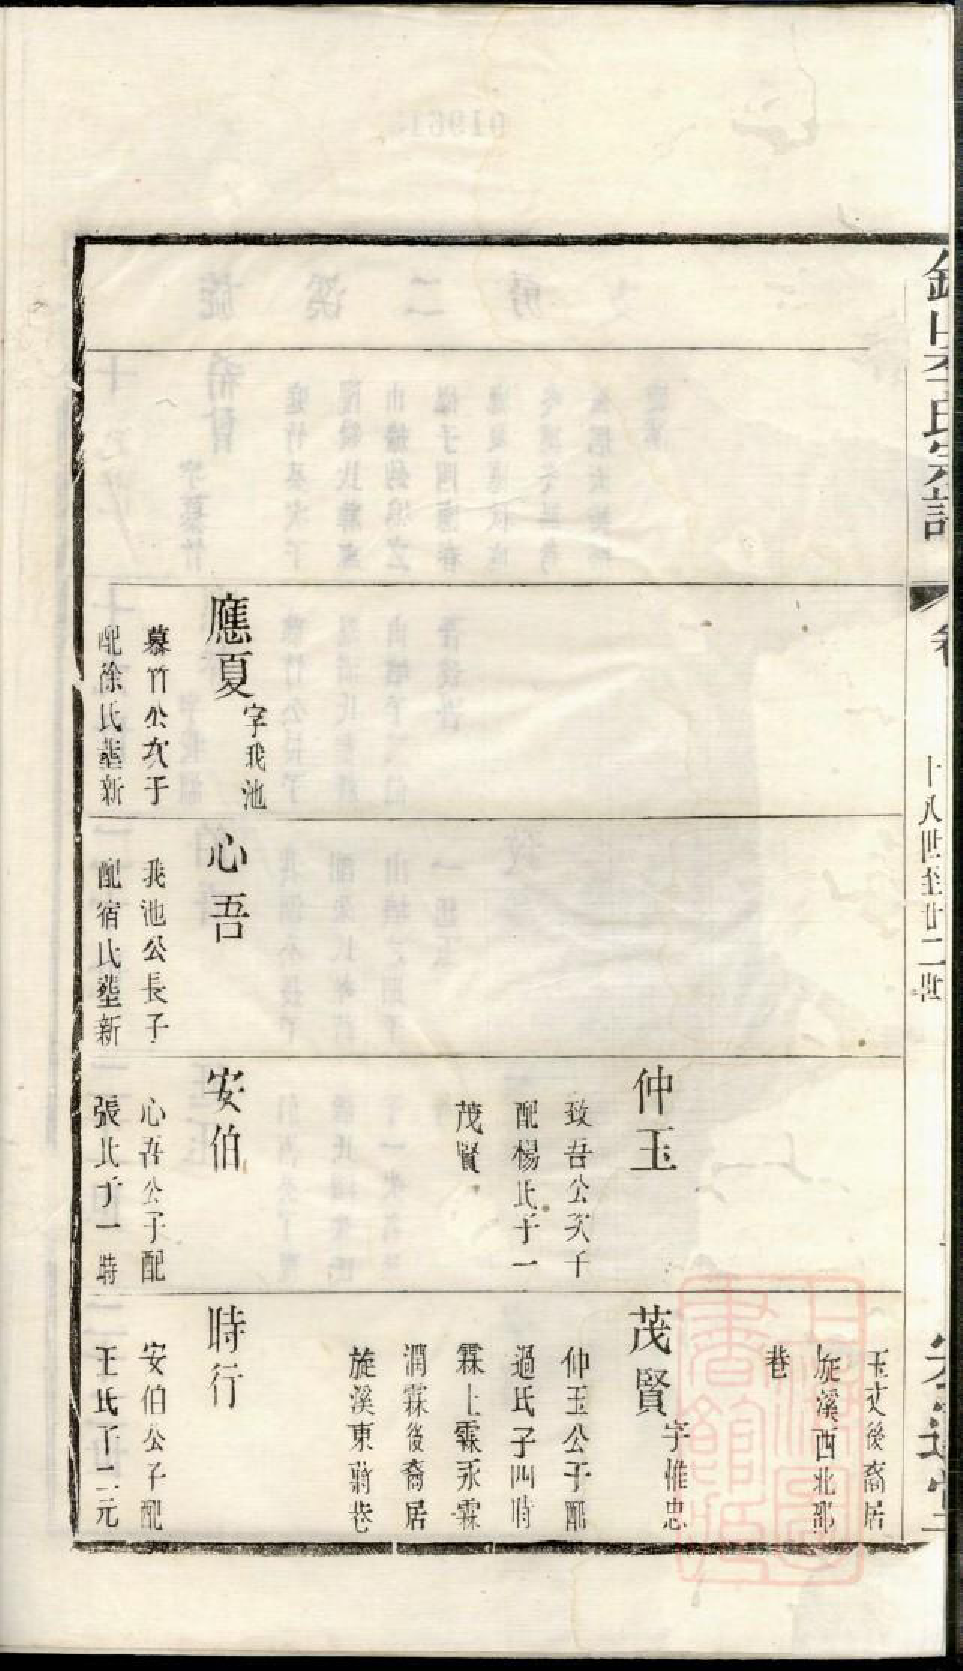 十八世至廿二世
應夏字我池
慕竹公次子
配徐氏塟新
心吾
我池公長子
配宿氏塟新
仲玉
致吾公次子
配楊氏子一
茂賢
安伯
心吾公子配
張氏子一時
玉文後裔居
旋溪西北鄒
巷
茂賢字惟忠
仲玉公子配
過氏子四時
霖上霖永霖
潤霖後裔居
旋溪東蔣巷
時行
安伯公子配
王氏子二元